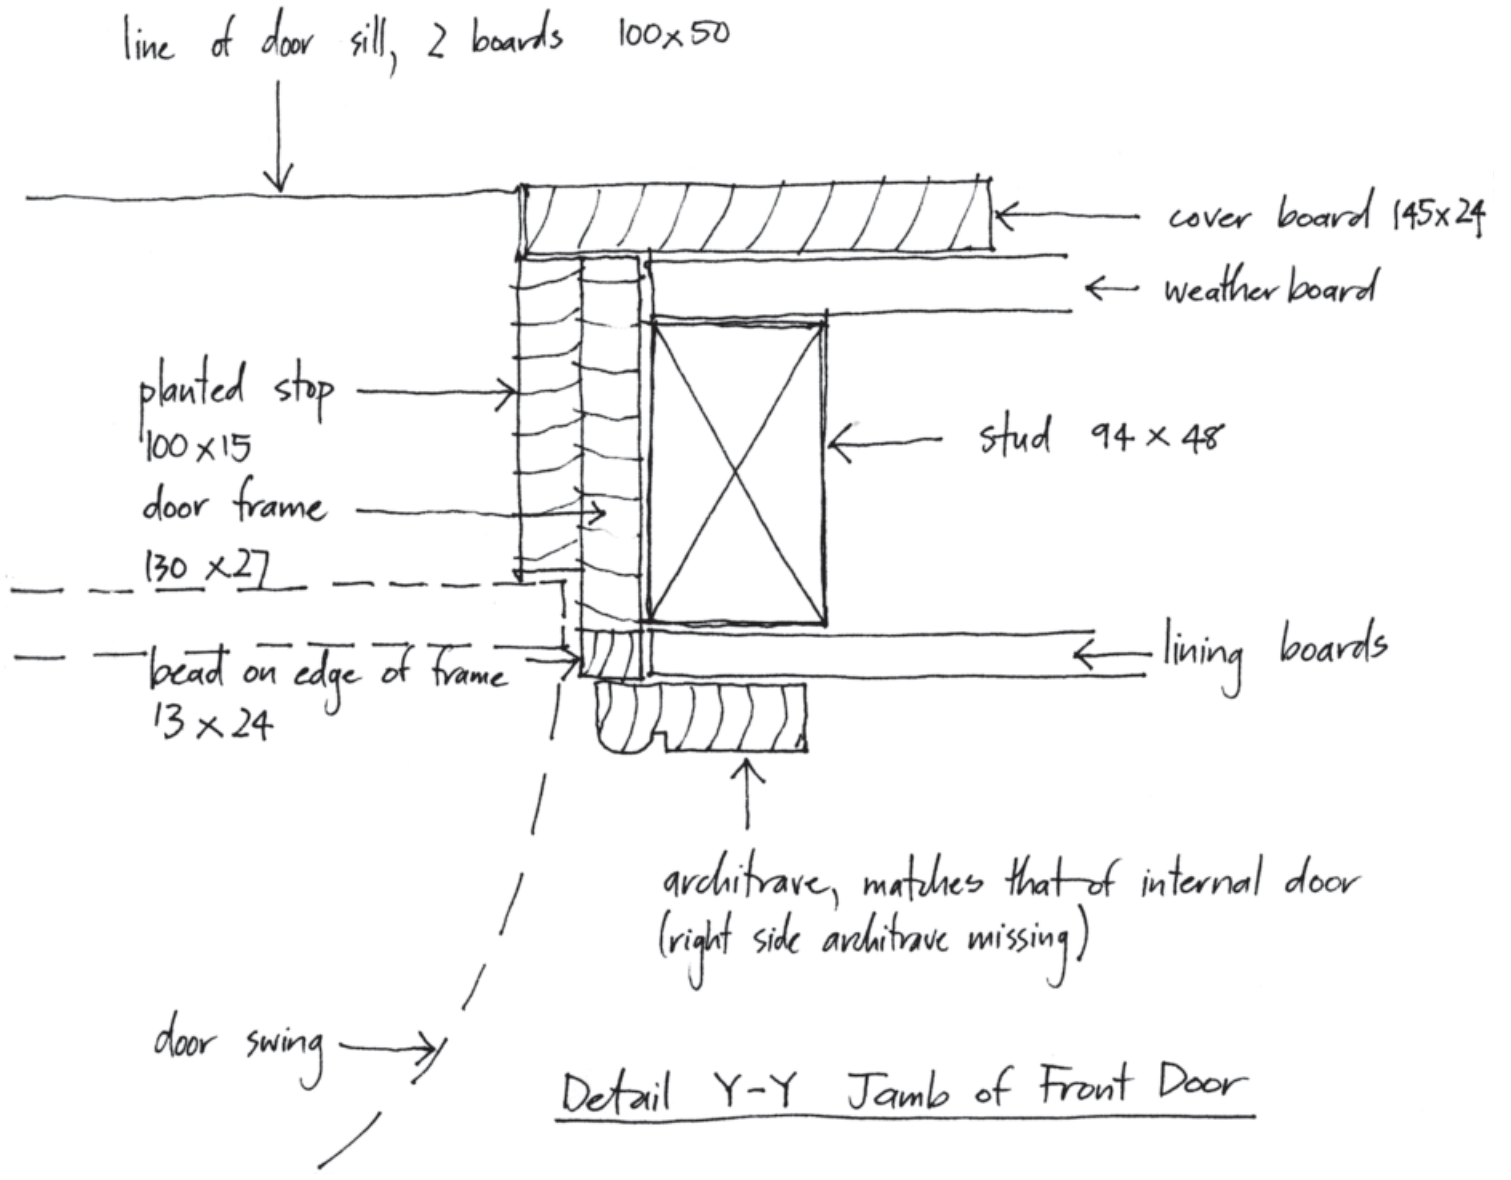 line of door sill, 2 boards 100x50
cover board 145x24
weatherboard
planted stop
100 x 15
stud 94 x 48
door frame
130 x 27
bead on edge of frame
13 x 24
lining boards
architrave, matches that of internal door
(right side architrave missing)
door swing
Detail Y-Y Jamb of Front Door